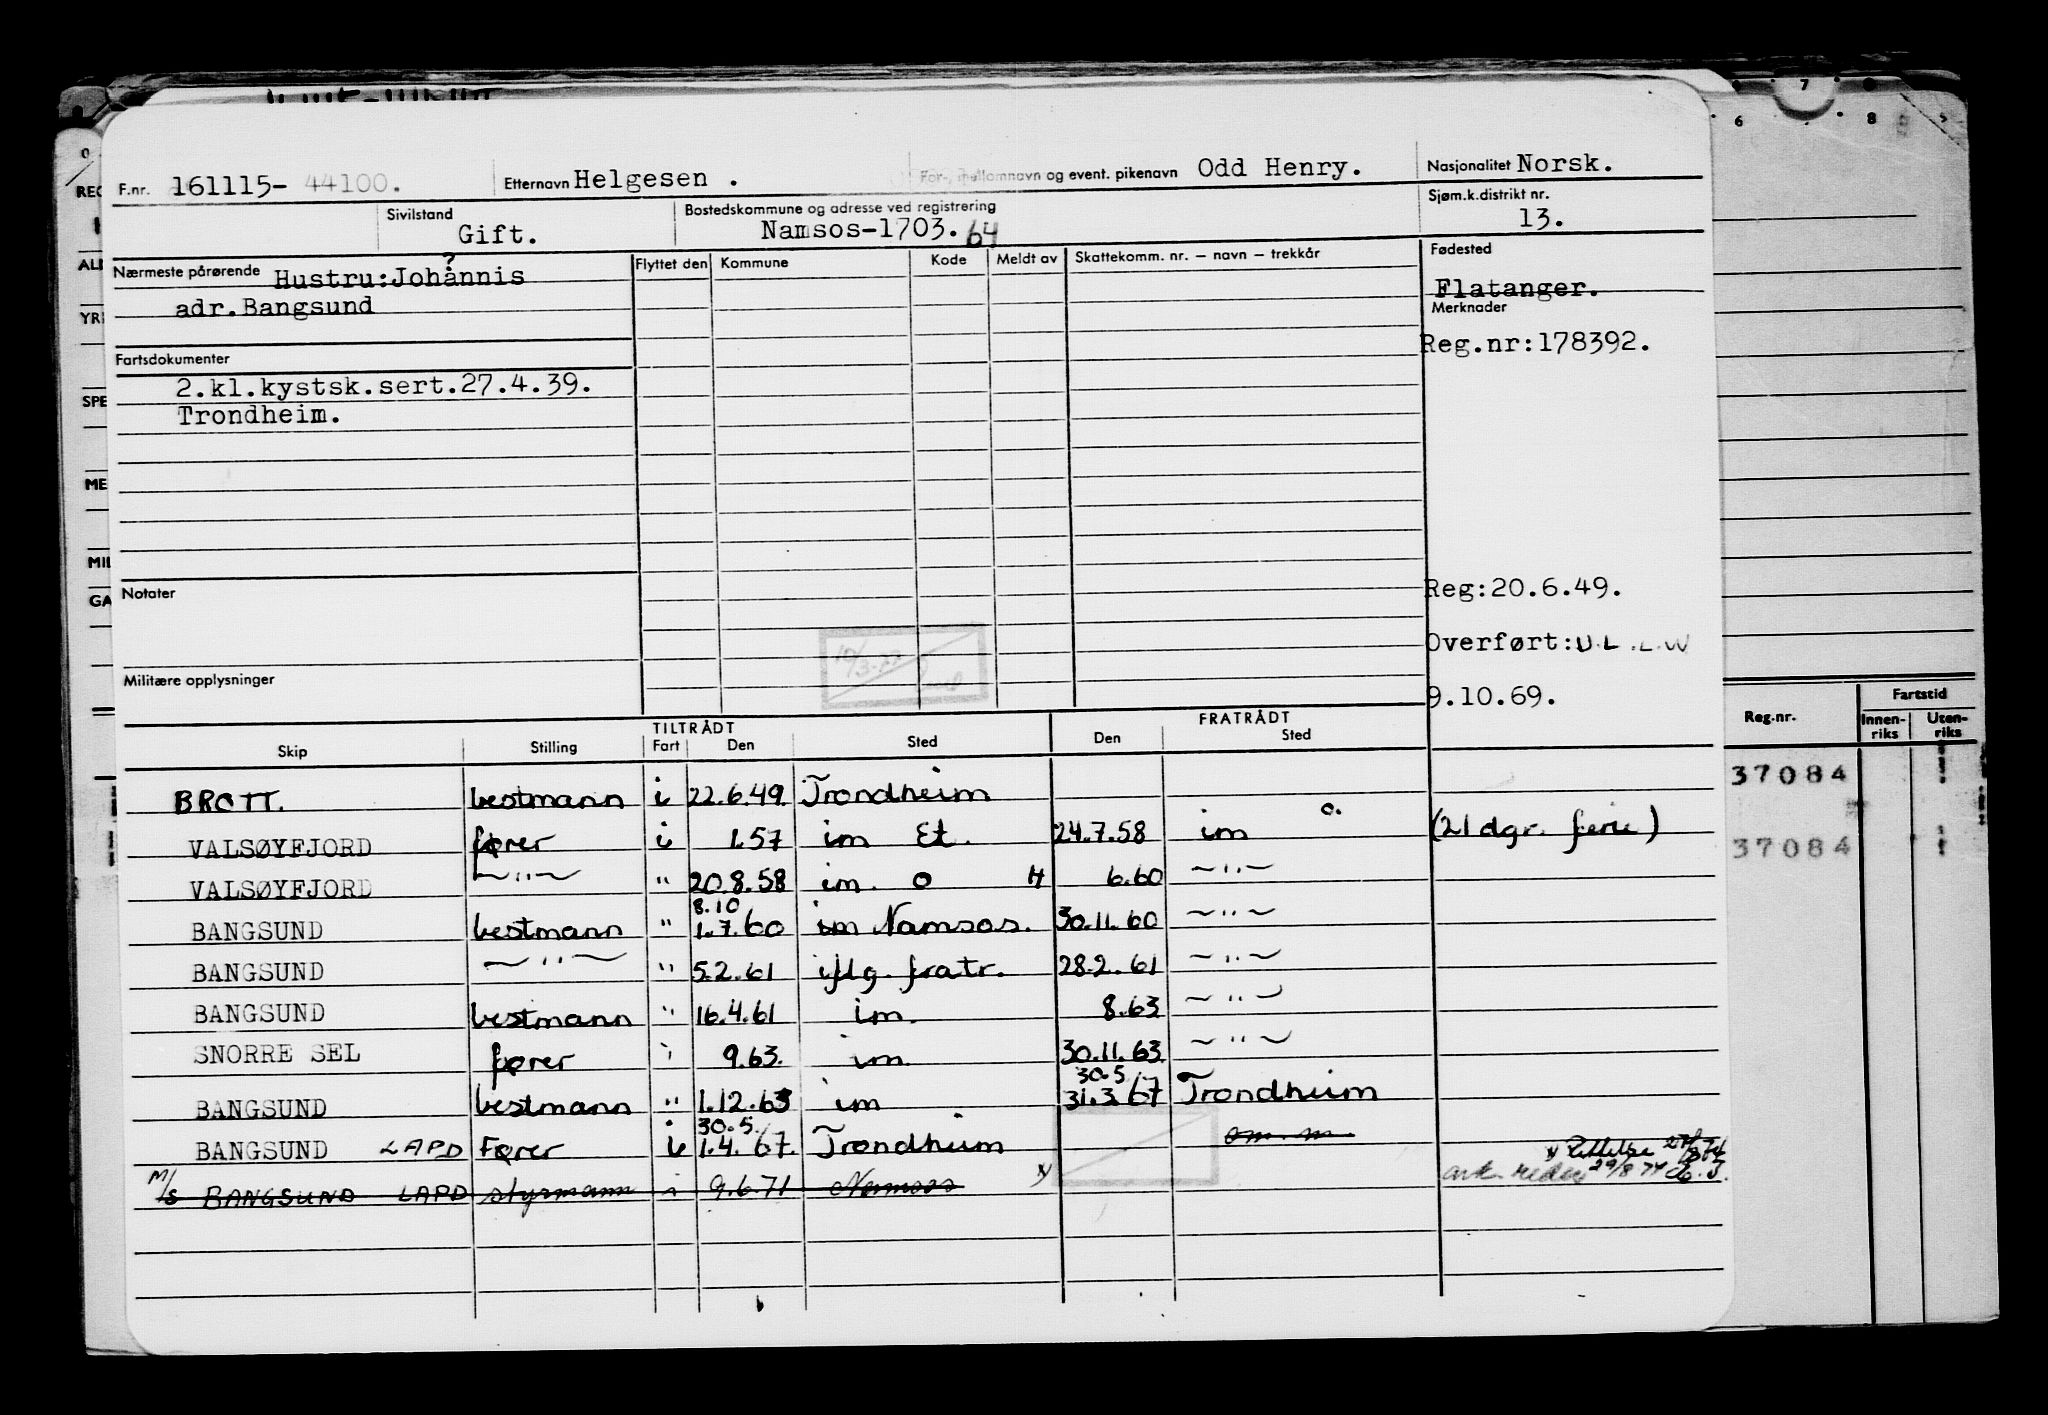 F.nr. 161115- 44100. Etternavn Helgesen . For-, mellomnavn og event. pikenavn Odd Henry. Nasjonalitet Norsk.
Sivilstand Gift. Bostedskommune og adresse ved registrering Namsos-1703. 64 Sjøm.k.distrikt nr. 13.
Nærmeste pårørende Hustru:Johannis ? Flyttet den Kommune Kode Meldt av Skattekomm. nr. — navn — trekkår Fødested
adr.Bangsund Flatanger.
Merknader
Reg.nr:178392.
Fartsdokumenter
2.kl.kystsk.sert.27.4.39.
Trondheim.
Notater
Reg:20.6.49.
Overført:
Militære opplysninger
9.10.69.
TILTRÅDT FRATRÅDT
Skip Stilling Fart Den Sted Den Sted
BROTT. bestmann i 22.6.49 Trondheim
VALSØYFJORD fører i 1.57 im Et. 24.7.58 im o. (21 dgr. ferie)
VALSØYFJORD —"— " 20.8.58 im. O H 6.60 —"—
8.10
BANGSUND bestmann " 1.7.60 im Namsos. 30.11.60 —"—
BANGSUND —"— " 5.2.61 iflg. fratr. 28.2.61 —"—
BANGSUND bestmann " 16.4.61 im. 8.63 —"—
SNORRE SEL fører i 9.63. im. 30.11.63 —"—
30.5
BANGSUND bestmann " 1.12.63 im 31.3.67 Trondheim
30.5.
BANGSUND LAPD Fører i 1.4.67. Trondheim om. m.
M/S BANGSUND LAPD styrmann i 9.6.71 Namsos x)
x) Rettelse
29/8 74
Reg.nr. Fartstid
Innen-riks Uten-riks
37084
37084
REG
YRK
SPE
ME
MIL
GA
6 7 8